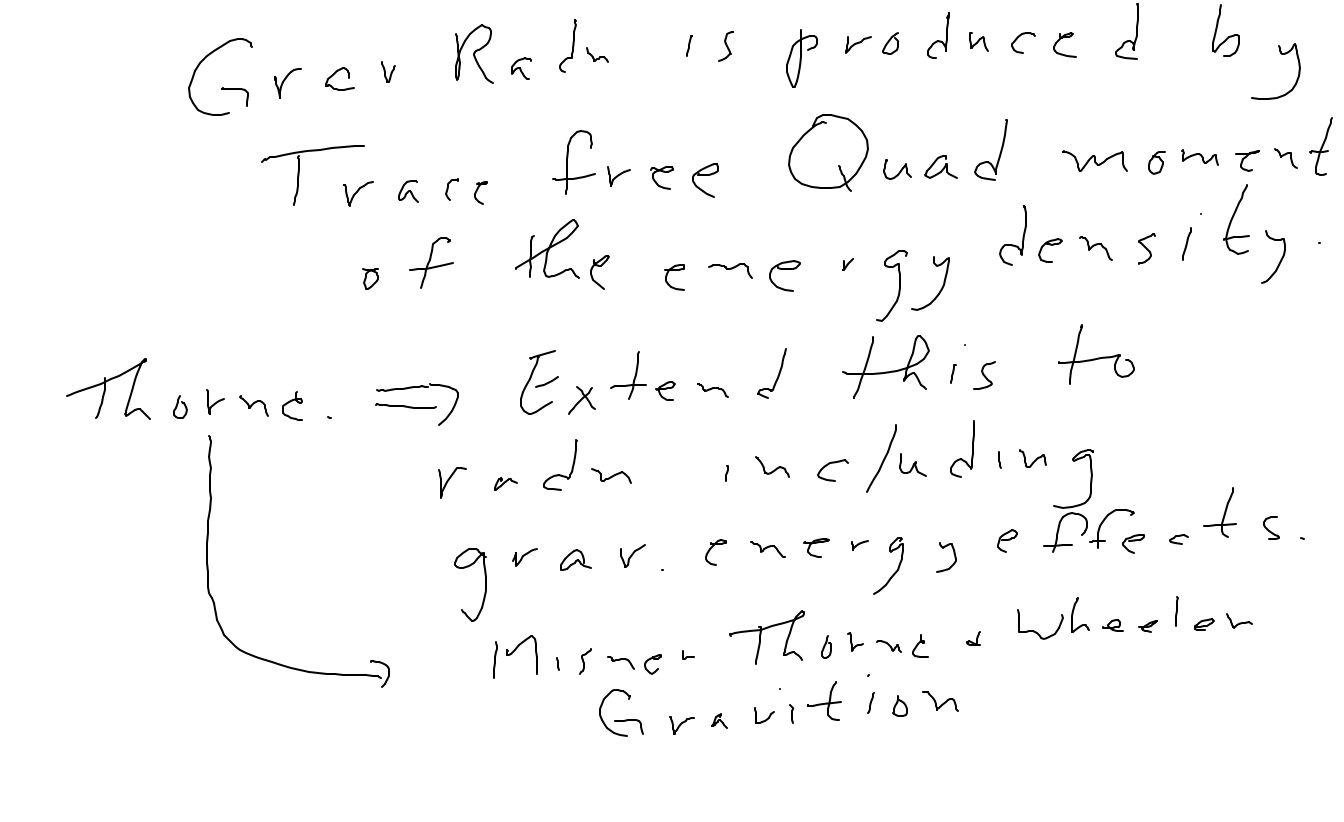 Grav Radn is produced by
Trace free Quad moment
of the energy density.
Thorne. ⇒ Extend this to
radn including
grav. energy effects.
Misner Thorne & Wheeler
Gravition